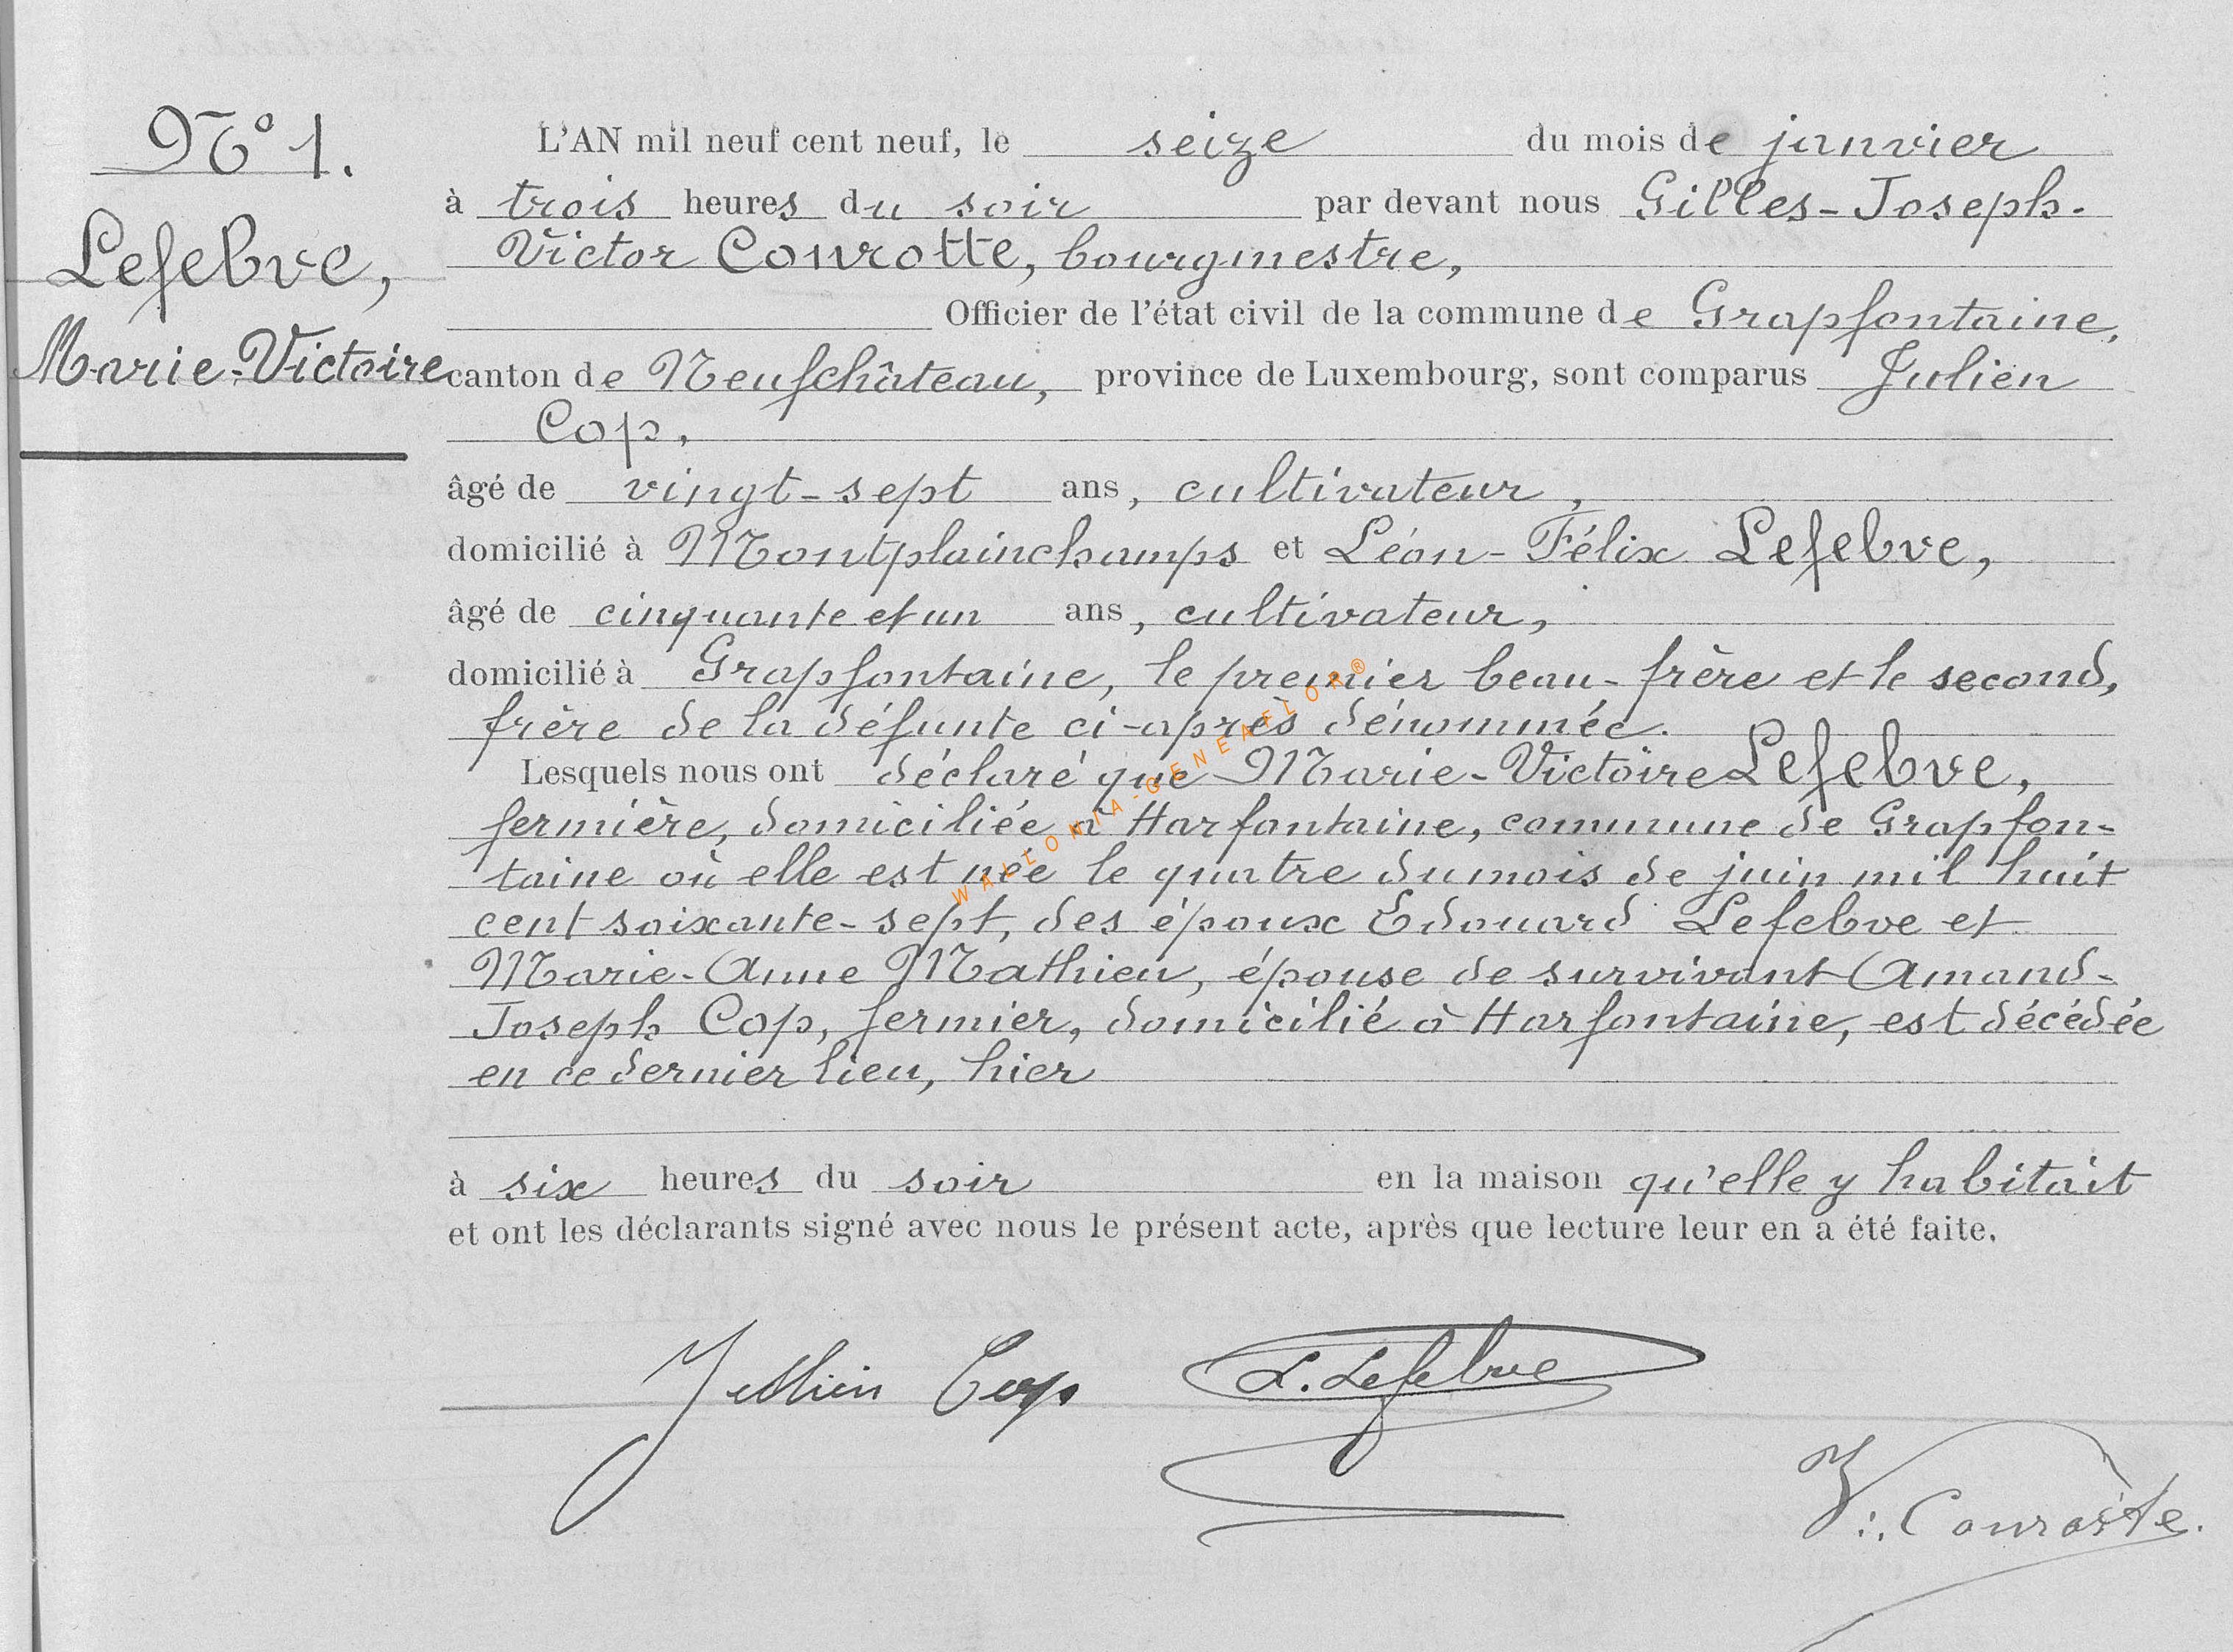 N° 1.
Lefebvre,
Marie-Victoire
L'AN mil neuf cent neuf, le seize du mois de janvier
à trois heures du soir par devant nous Gilles-Joseph-
Victor Conrotte, bourgmestre,
Officier de l'état civil de la commune de Grapfontaine,
canton de Neufchâteau, province de Luxembourg, sont comparus Julien
Cop,
âgé de vingt-sept ans, cultivateur,
domicilié à Montplainchamps et Léon-Félix Lefebvre,
âgé de cinquante et un ans, cultivateur,
domicilié à Grapfontaine, le premier beau-frère et le second,
frère de la défunte ci-après dénommée.
Lesquels nous ont déclaré que Marie-Victoire Lefebvre,
fermière, domiciliée à Harfontaine, commune de Grapfon-
taine où elle est née le quatre du mois de juin mil huit
cent soixante-sept, des époux Edouard Lefebvre et
Marie-Anne Mathieu, épouse de survivant Amand-
Joseph Cop, fermier, domicilié à Harfontaine, est décédée
en ce dernier lieu, hier
à six heures du soir en la maison qu'elle y habitait
et ont les déclarants signé avec nous le présent acte, après que lecture leur en a été faite.
Jullien Cop L. Lefebvre
V. Conrotte.
WALLONIA-GENEAFLOR®